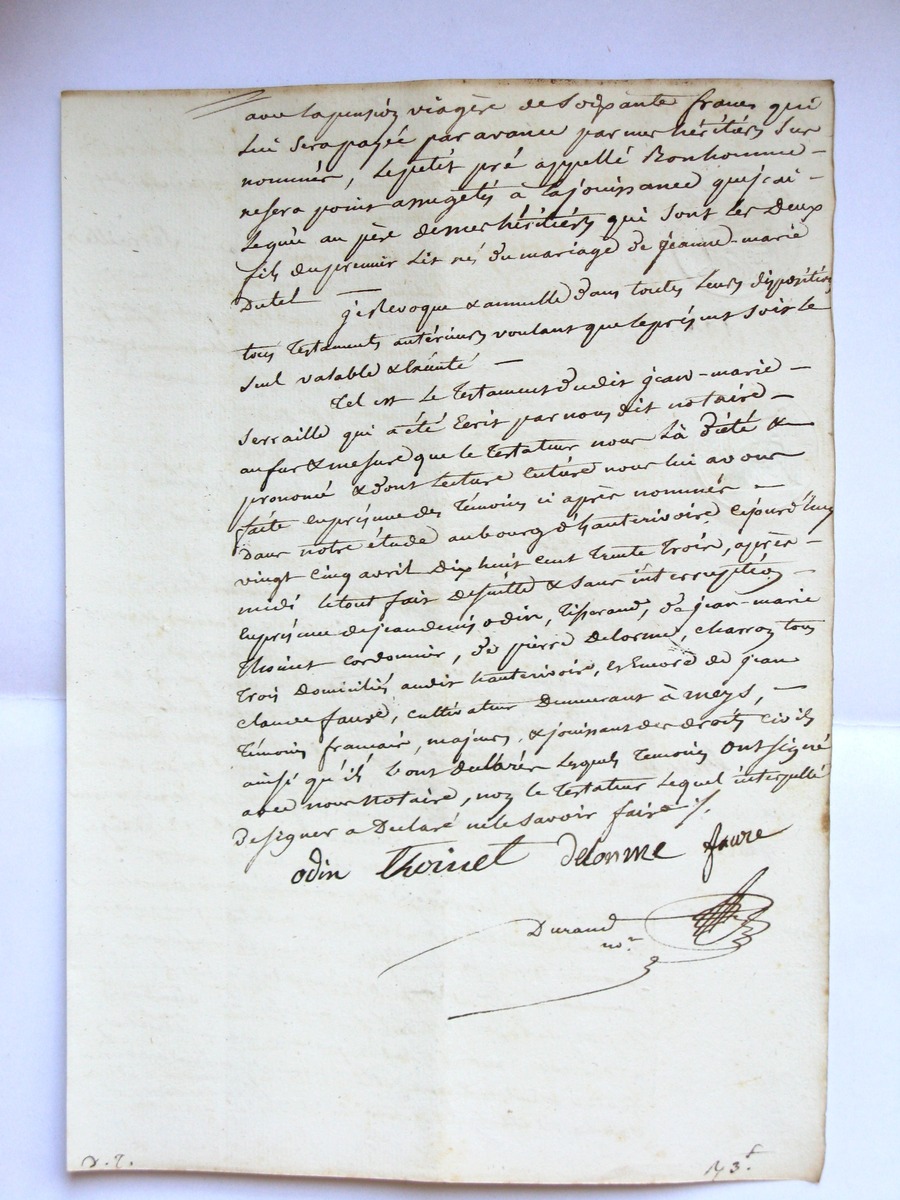 avec la pension viagère de soixante francs qui
lui sera payée par avance par mes héritiers sus
nommés, le petit pré appellé Bonhomme
ne sera point assugetis à la jouissance que j'ai
legué au père de mes héritiers qui sont les deux
fils du premier lit nés du mariage de jeanne-marie
Dutel je Revoque & annulle dans toutes leurs dispositions
tous Testaments antérieurs voulant que le présent soit le
seul valable &
Tel est le Testament dudit jean-marie
Serraille qui a été Ecrit par nous dit notaire
au fur & mesure que le Testateur nous l'à dicté &
prononcé & dont lecture entière nous lui avons
faite en présence des Témoins ci après nommés
dans notre étude au bourg d'hauterivoire, cejourd'huy
vingt cinq avril dix huit cent trente trois, après
midi le tout fait desuitte & sans interruption
En présence de jean denis odin, Tisserand, de jean-marie
Thoinet cordonnier, de pierre Delorme, charron tous
Trois domiciliés audit hauterivoire, & Encore de jean
claude faure, cultivateur demeurant à meys,
Témoins français, majeurs, & jouissant des droits civils
ainsi qu'ils l'ont déclarés lesquels Témoins ont signé
avec nous Notaire, non le Testateur lequel interpellé
de signer a Déclaré ne le savoir faire ./.
odin Thoinet delorme faure
Durand
no.re
V. T.